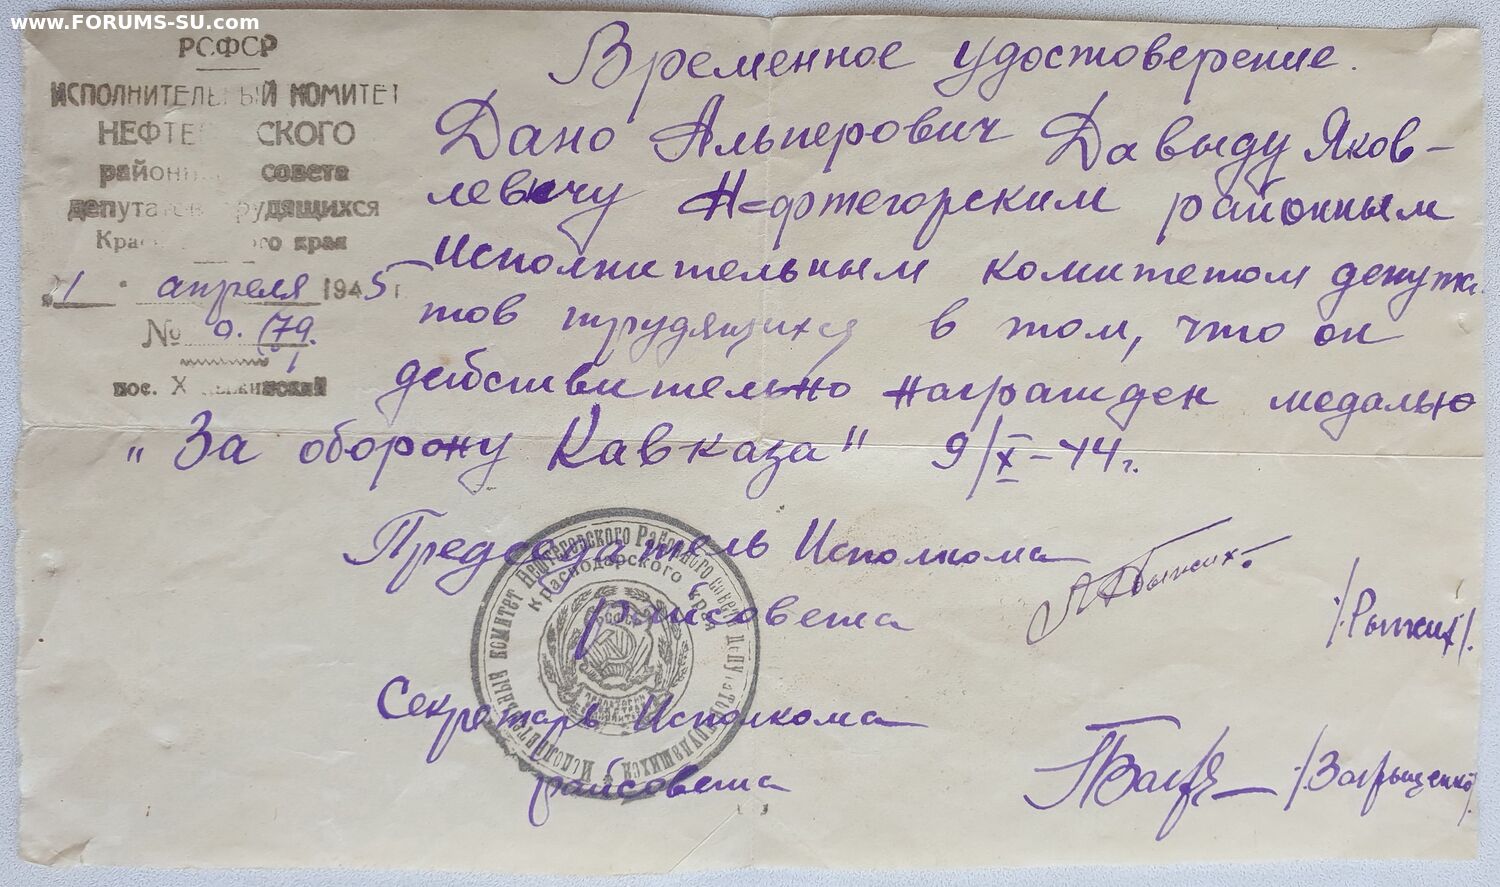 www.FORUMS-SU.com
РСФСР
ИСПОЛНИТЕЛЬНЫЙ КОМИТЕТ
НЕФТЕ СКОГО
район совета
депутатов трудящихся
Кра ого края
апреля 1945 г.
№
пос. Х жинский
Временное удостоверение.
Дано Альперович Давыду Яков-
левичу Нефтегорским районным
исполнительным комитетом депута-
тов трудящихся в том, что он
действительно награжден медалью
„За оборону Кавказа" 9/X-44г.
Председатель Исполкома
райсовета
/Рыжих/.
Секретарь Исполкома
райсовета
Исполнительный комитет Нефтегорского Районного совета Депутатов трудящихся
Краснодарского края
РСФСР